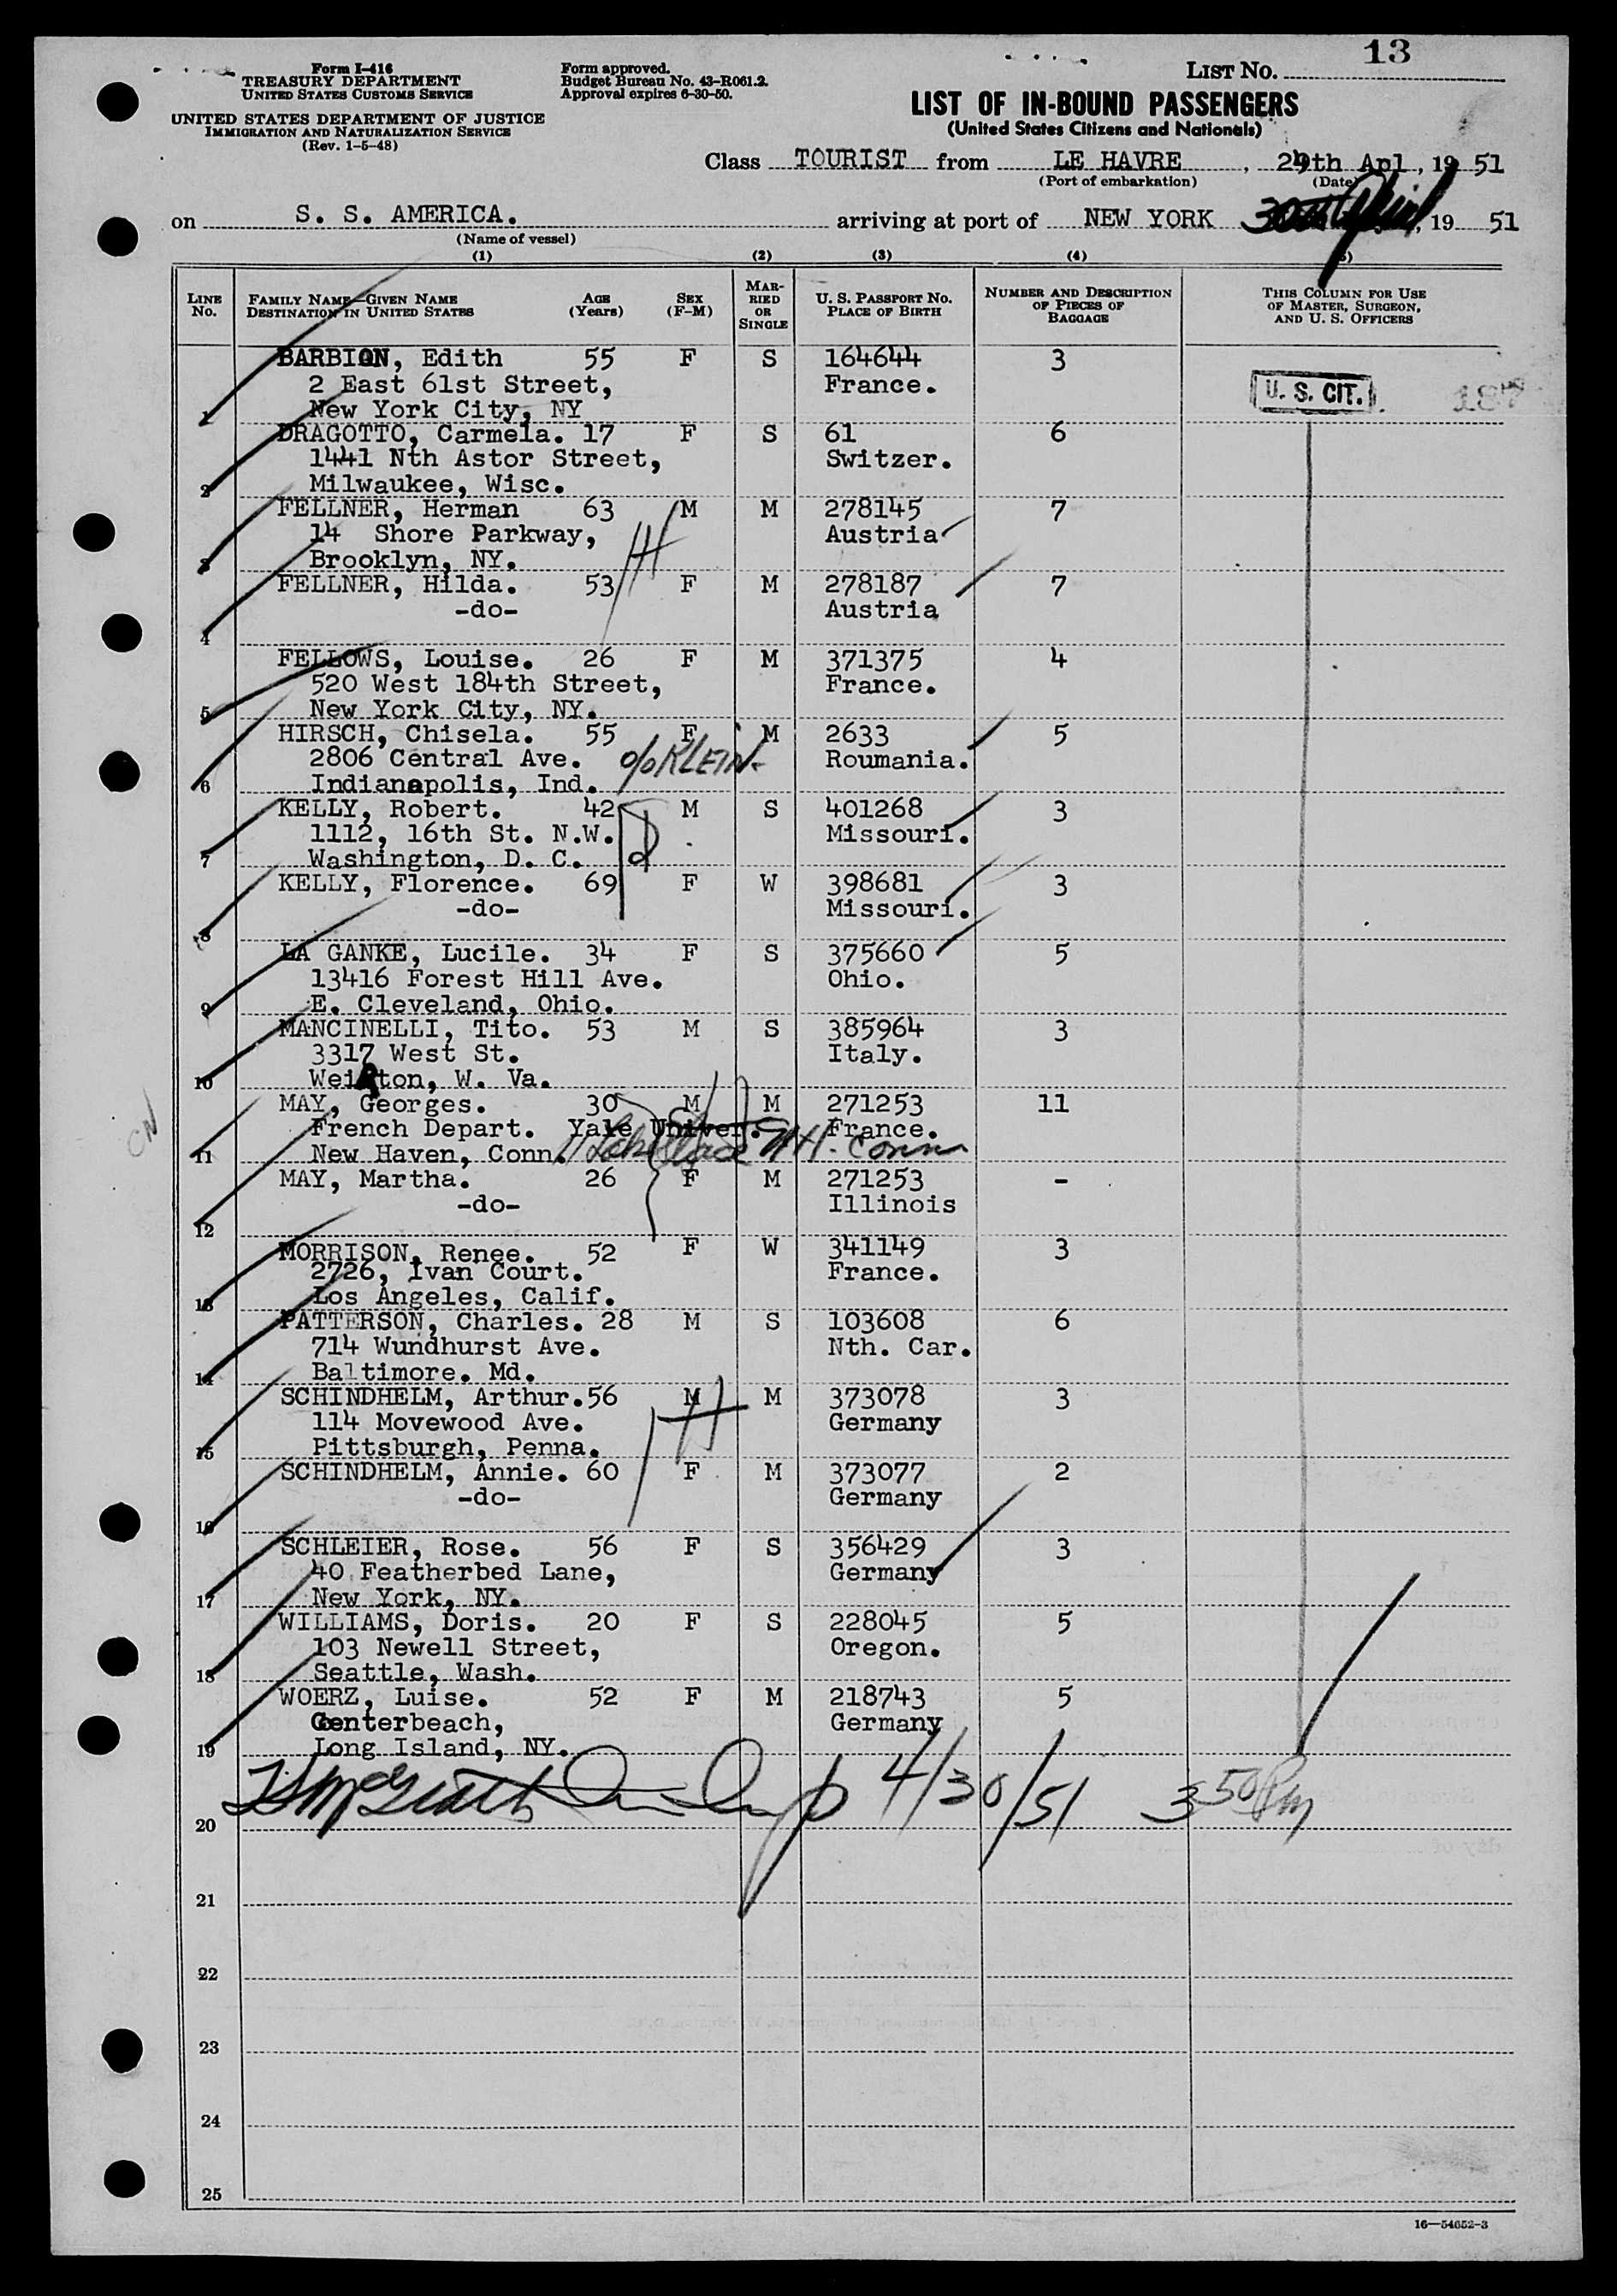 13
Form I-416
TREASURY DEPARTMENT
UNITED STATES CUSTOMS SERVICE
UNITED STATES DEPARTMENT OF JUSTICE
IMMIGRATION AND NATURALIZATION SERVICE
(Rev. 1-5-48)
Form approved.
Budget Bureau No. 43-R061.2.
Approval expires 6-30-50.
LIST NO.
LIST OF IN-BOUND PASSENGERS
(United States Citizens and Nationals)
Class TOURIST from LE HAVRE, 24th Apl, 19 51
(Port of embarkation) (Date)
on S. S. AMERICA. arriving at port of NEW YORK 30th April, 19 51
(Name of vessel)
(1) (2) (3) (4) (5)
LINE NO. FAMILY NAME—GIVEN NAME DESTINATION IN UNITED STATES AGE (Years) SEX (F-M) MARRIED OR SINGLE U. S. PASSPORT NO. PLACE OF BIRTH NUMBER AND DESCRIPTION OF PIECES OF BAGGAGE THIS COLUMN FOR USE OF MASTER, SURGEON, AND U. S. OFFICERS
BARBION, Edith 55 F S 164644 3
2 East 61st Street, France. U. S. CIT.
1 New York City, NY
DRAGOTTO, Carmela. 17 F S 61 6
1441 Nth Astor Street, Switzer.
2 Milwaukee, Wisc.
FELLNER, Herman 63 M M 278145 7
14 Shore Parkway, Austria
3 Brooklyn, NY.
FELLNER, Hilda. 53 F M 278187 7
-do- Austria
4
FELLOWS, Louise. 26 F M 371375 4
520 West 184th Street, France.
5 New York City, NY.
HIRSCH, Chisela. 55 F M 2633 5
2806 Central Ave. c/o KLEIN Roumania.
6 Indianapolis, Ind.
KELLY, Robert. 42 M S 401268 3
1112, 16th St. N.W. Missouri.
7 Washington, D. C.
KELLY, Florence. 69 F W 398681 3
-do- Missouri.
8
LA GANKE, Lucile. 34 F S 375660 5
13416 Forest Hill Ave. Ohio.
9 E. Cleveland, Ohio.
MANCINELLI, Tito. 53 M S 385964 3
3317 West St. Italy.
10 Weirton, W. Va.
MAY, Georges. 30 M M 271253 11
French Depart. Yale Univer. France.
11 New Haven, Conn. Place N H. Conn
MAY, Martha. 26 F M 271253 -
-do- Illinois
12
MORRISON, Renee. 52 F W 341149 3
2726, Ivan Court. France.
13 Los Angeles, Calif.
PATTERSON, Charles. 28 M S 103608 6
714 Wundhurst Ave. Nth. Car.
14 Baltimore. Md.
SCHINDHELM, Arthur. 56 M M 373078 3
114 Movewood Ave. Germany
15 Pittsburgh, Penna.
SCHINDHELM, Annie. 60 F M 373077 2
-do- Germany
16
SCHLEIER, Rose. 56 F S 356429 3
40 Featherbed Lane, Germany
17 New York, NY.
WILLIAMS, Doris. 20 F S 228045 5
103 Newell Street, Oregon.
18 Seattle, Wash.
WOERZ, Luise. 52 F M 218743 5
Centerbeach, Germany
19 Long Island, NY.
4/30/51 3 50 Pm
20
21
22
23
24
25
16—54652-3